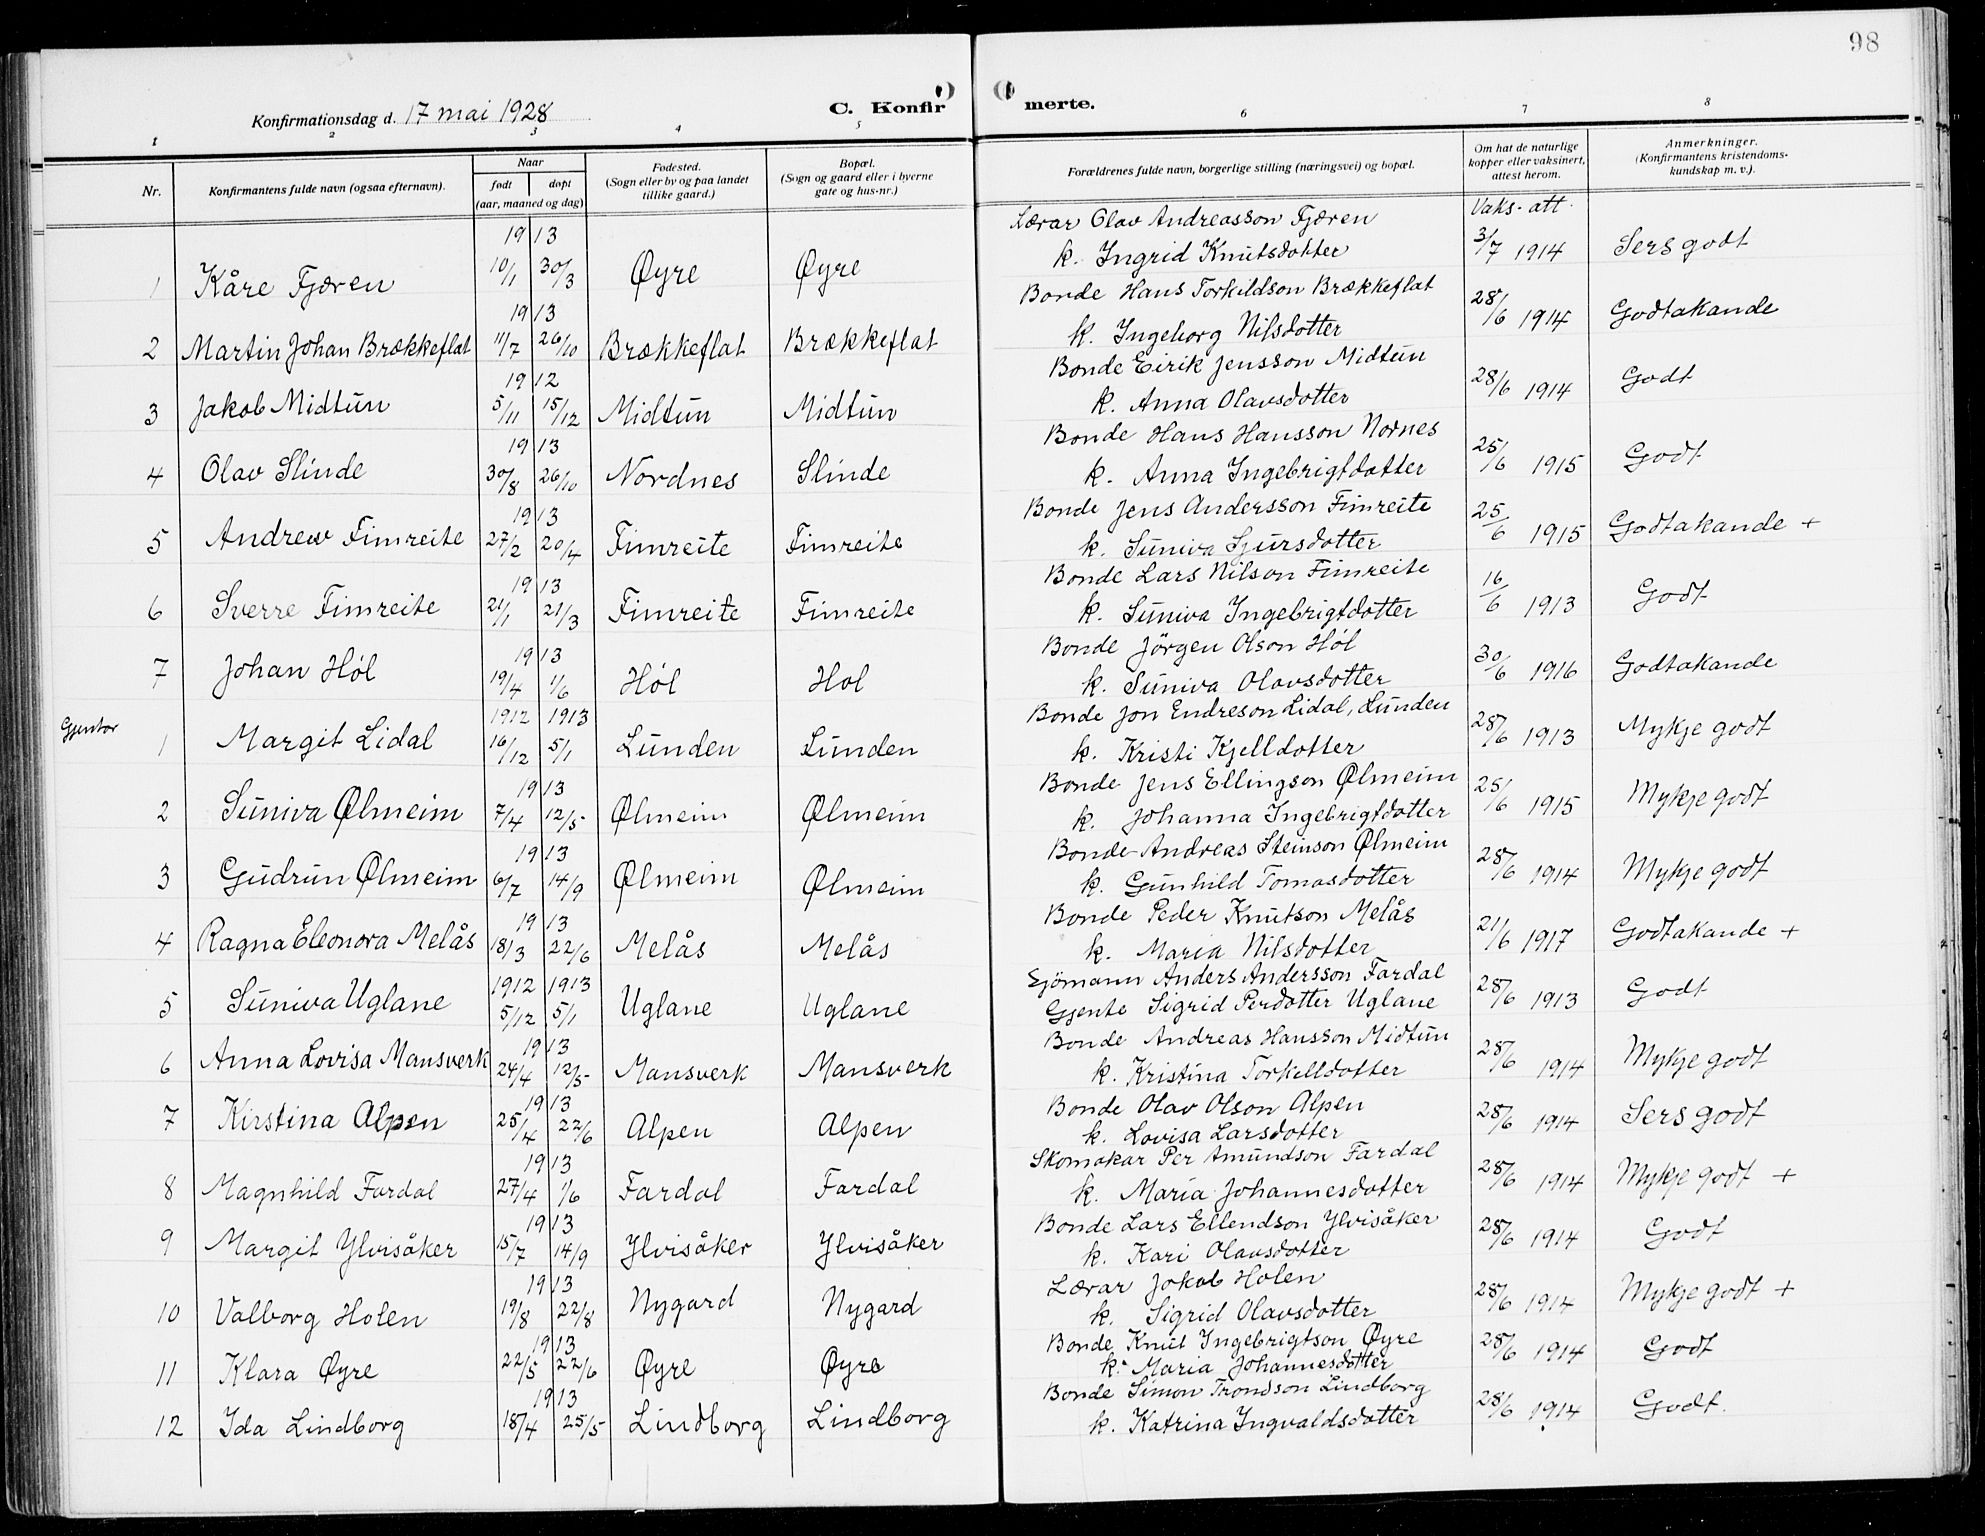 98
Konfirmationsdag d. 17 mai 1928
C. Konfirmerte.
1 2 3 4 5 6 7 8
Nr. | Konfirmantens fulde navn (ogsaa efternavn). | Naar født | døpt (aar, maaned og dag) | Fødested. (Sogn eller by og paa landet tillike gaard.) | Bopæl. (Sogn og gaard eller i byerne gate og hus-nr.) | Forældrenes fulde navn, borgerlige stilling (næringsvei) og bopæl. | Om hat de naturlige kopper eller vaksinert, attest herom. | Anmerkninger. (Konfirmantens kristendoms-kundskap m. v.).
Vaks. att.
1913 Lærar Olav Andreasson Fjæren
1 Kåre Fjæren 10/1 30/3 Øyre Øyre k. Ingrid Knutsdotter 3/7 1914 Sers godt
1913 Bonde Hans Torkildson Brækkeflat
2 Martin Johan Brækkeflat 11/7 26/10 Brækkeflat Brækkeflat k. Ingeborg Nilsdotter 28/6 1914 Godtakande
1912 Bonde Eirik Jensson Midtun
3 Jakob Midtun 5/11 15/12 Midtun Midtun k. Anna Olavsdotter 28/6 1914 Godt
1913 Bonde Hans Hansson Nornes
4 Olav Slinde 30/8 26/10 Nordnes Slinde k. Anna Ingebrigtdotter 25/6 1915 Godt
1913 Bonde Jens Andersson Fimreite
5 Andrew Fimreite 27/2 20/4 Fimreite Fimreite k. Suniva Sjursdotter 25/6 1915 Godtakande +
1913 Bonde Lars Nilson Fimreite
6 Sverre Fimreite 21/1 21/3 Fimreite Fimreite k. Suniva Ingebrigtdotter 16/6 1913 Godt
1913 Bonde Jörgen Olson Høl
7 Johan Høl 19/4 1/6 Høl Hol k. Suniva Olavsdotter 30/6 1916 Godtakande
Gjentor
1912 1913 Bonde Jon Endreson Lidal, Lunden
1 Margit Lidal 16/12 5/1 Lunden Lunden k. Kristi Kjelldotter 28/6 1913 Mykje godt
1913 Bonde Jens Ellingson Ølmeim
2 Suniva Ølmeim 7/4 12/5 Ølmeim Ølmeim k. Johanna Ingebrigtdotter 25/6 1915 Mykje godt
1913 Bonde Andreas Steinson Ølmeim
3 Gudrun Ølmeim 6/7 14/9 Ølmeim Ølmeim k. Gunhild Tomasdotter 28/6 1914 Mykje godt
1913 Bonde Peder Knutson Melås
4 Ragna Eleonora Melås 18/3 22/6 Melås Melås k. Maria Nilsdotter 21/6 1917 Godtakande +
1912 1913 Sjömann Anders Andersson Fardal
5 Suniva Uglane 5/12 5/1 Uglane Uglane Gjente Sigrid Perdotter Uglane 28/6 1913 Godt
1913 Bonde Andreas Hansson Midtun
6 Anna Lovisa Mansverk 24/4 12/5 Mansverk Mansverk k. Kristina Torkelldotter 28/6 1914 Mykje godt
1913 Bonde Olav Olson Alpen
7 Kirstina Alpen 25/4 22/6 Alpen Alpen k. Lovisa Larsdotter 28/6 1914 Sers godt
1913 Skomakar Per Amundson Fardal
8 Magnhild Fardal 27/4 1/6 Fardal Fardal k. Maria Johannesdotter 28/6 1914 Mykje godt +
1913 Bonde Lars Ellendson Ylvisåker
9 Margit Ylvisåker 15/7 14/9 Ylvisåker Ylvisåker k. Kari Olavsdotter 28/6 1914 Godt
1913 Lærar Jakob Holen
10 Valborg Holen 19/8 22/8 Nygard Nygard k. Sigrid Olavsdotter 28/6 1914 Mykje godt +
1913 Bonde Knut Ingebrigtson Øyre
11 Klara Øyre 22/5 22/6 Øyre Øyre k. Maria Johannesdotter 28/6 1914 Godt
1913 Bonde Simon Trondson Lindborg
12 Ida Lindborg 18/4 25/5 Lindborg Lindborg k. Katrina Ingvaldsdotter 28/6 1914 Godt.